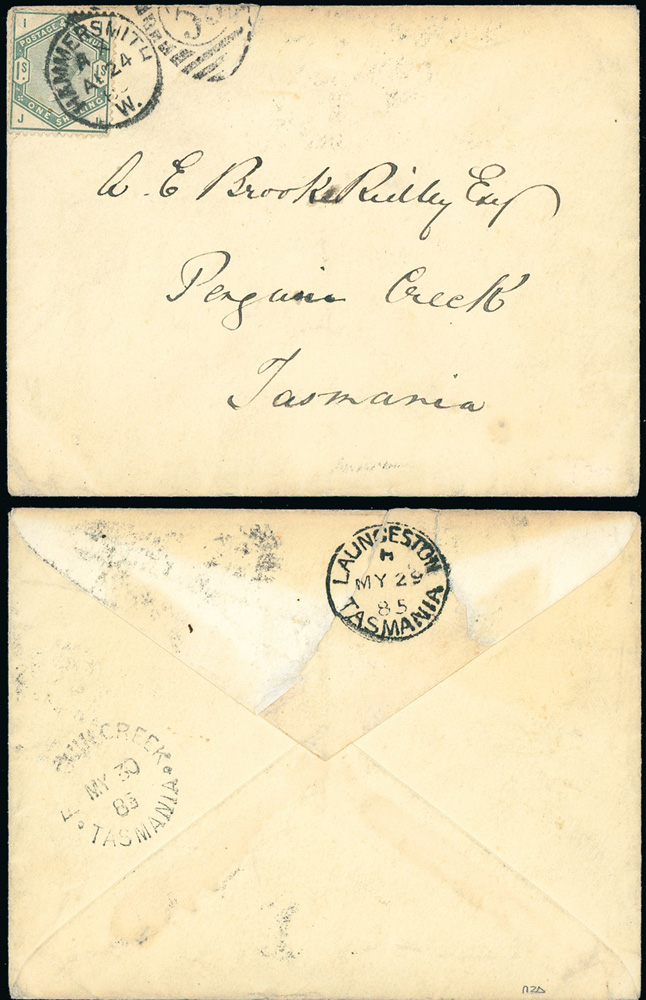 I
POSTAGE &
1S. 1S.
ONE SHILLING
J
HAMMERSMITH
A
AP 24
W.
A. E Brooke Ridley Esq
Penguin Creek
Tasmania
LAUNCESTON
H
MY 29
85
TASMANIA
P UIN CREEK
MY 30
85
TASMANIA